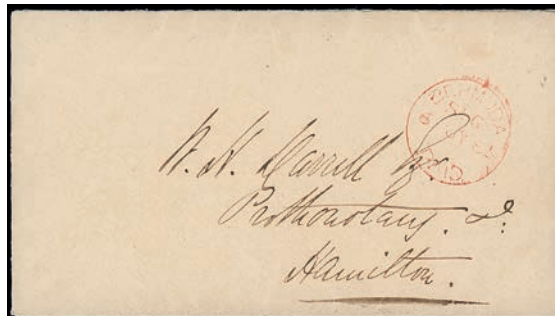 BERMUDA
W. H. Darrell Esqr
Prothonotary. &c:
Hamilton.